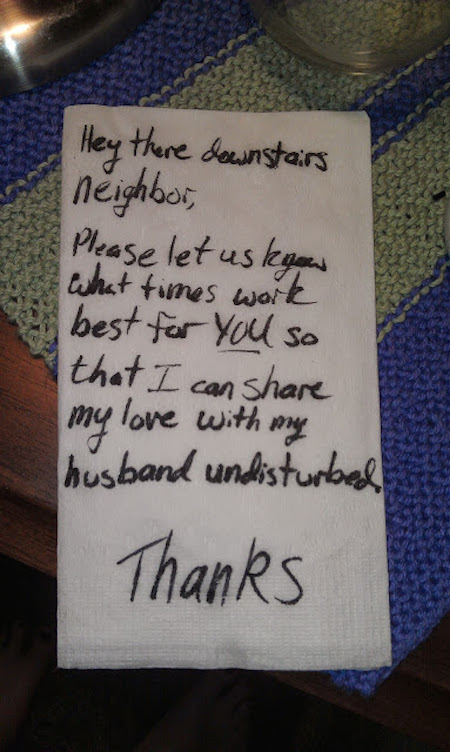 Hey there downstairs
neighbor,
Please let us know
what times work
best for YOU so
that I can share
my love with my
husband undisturbed.
Thanks